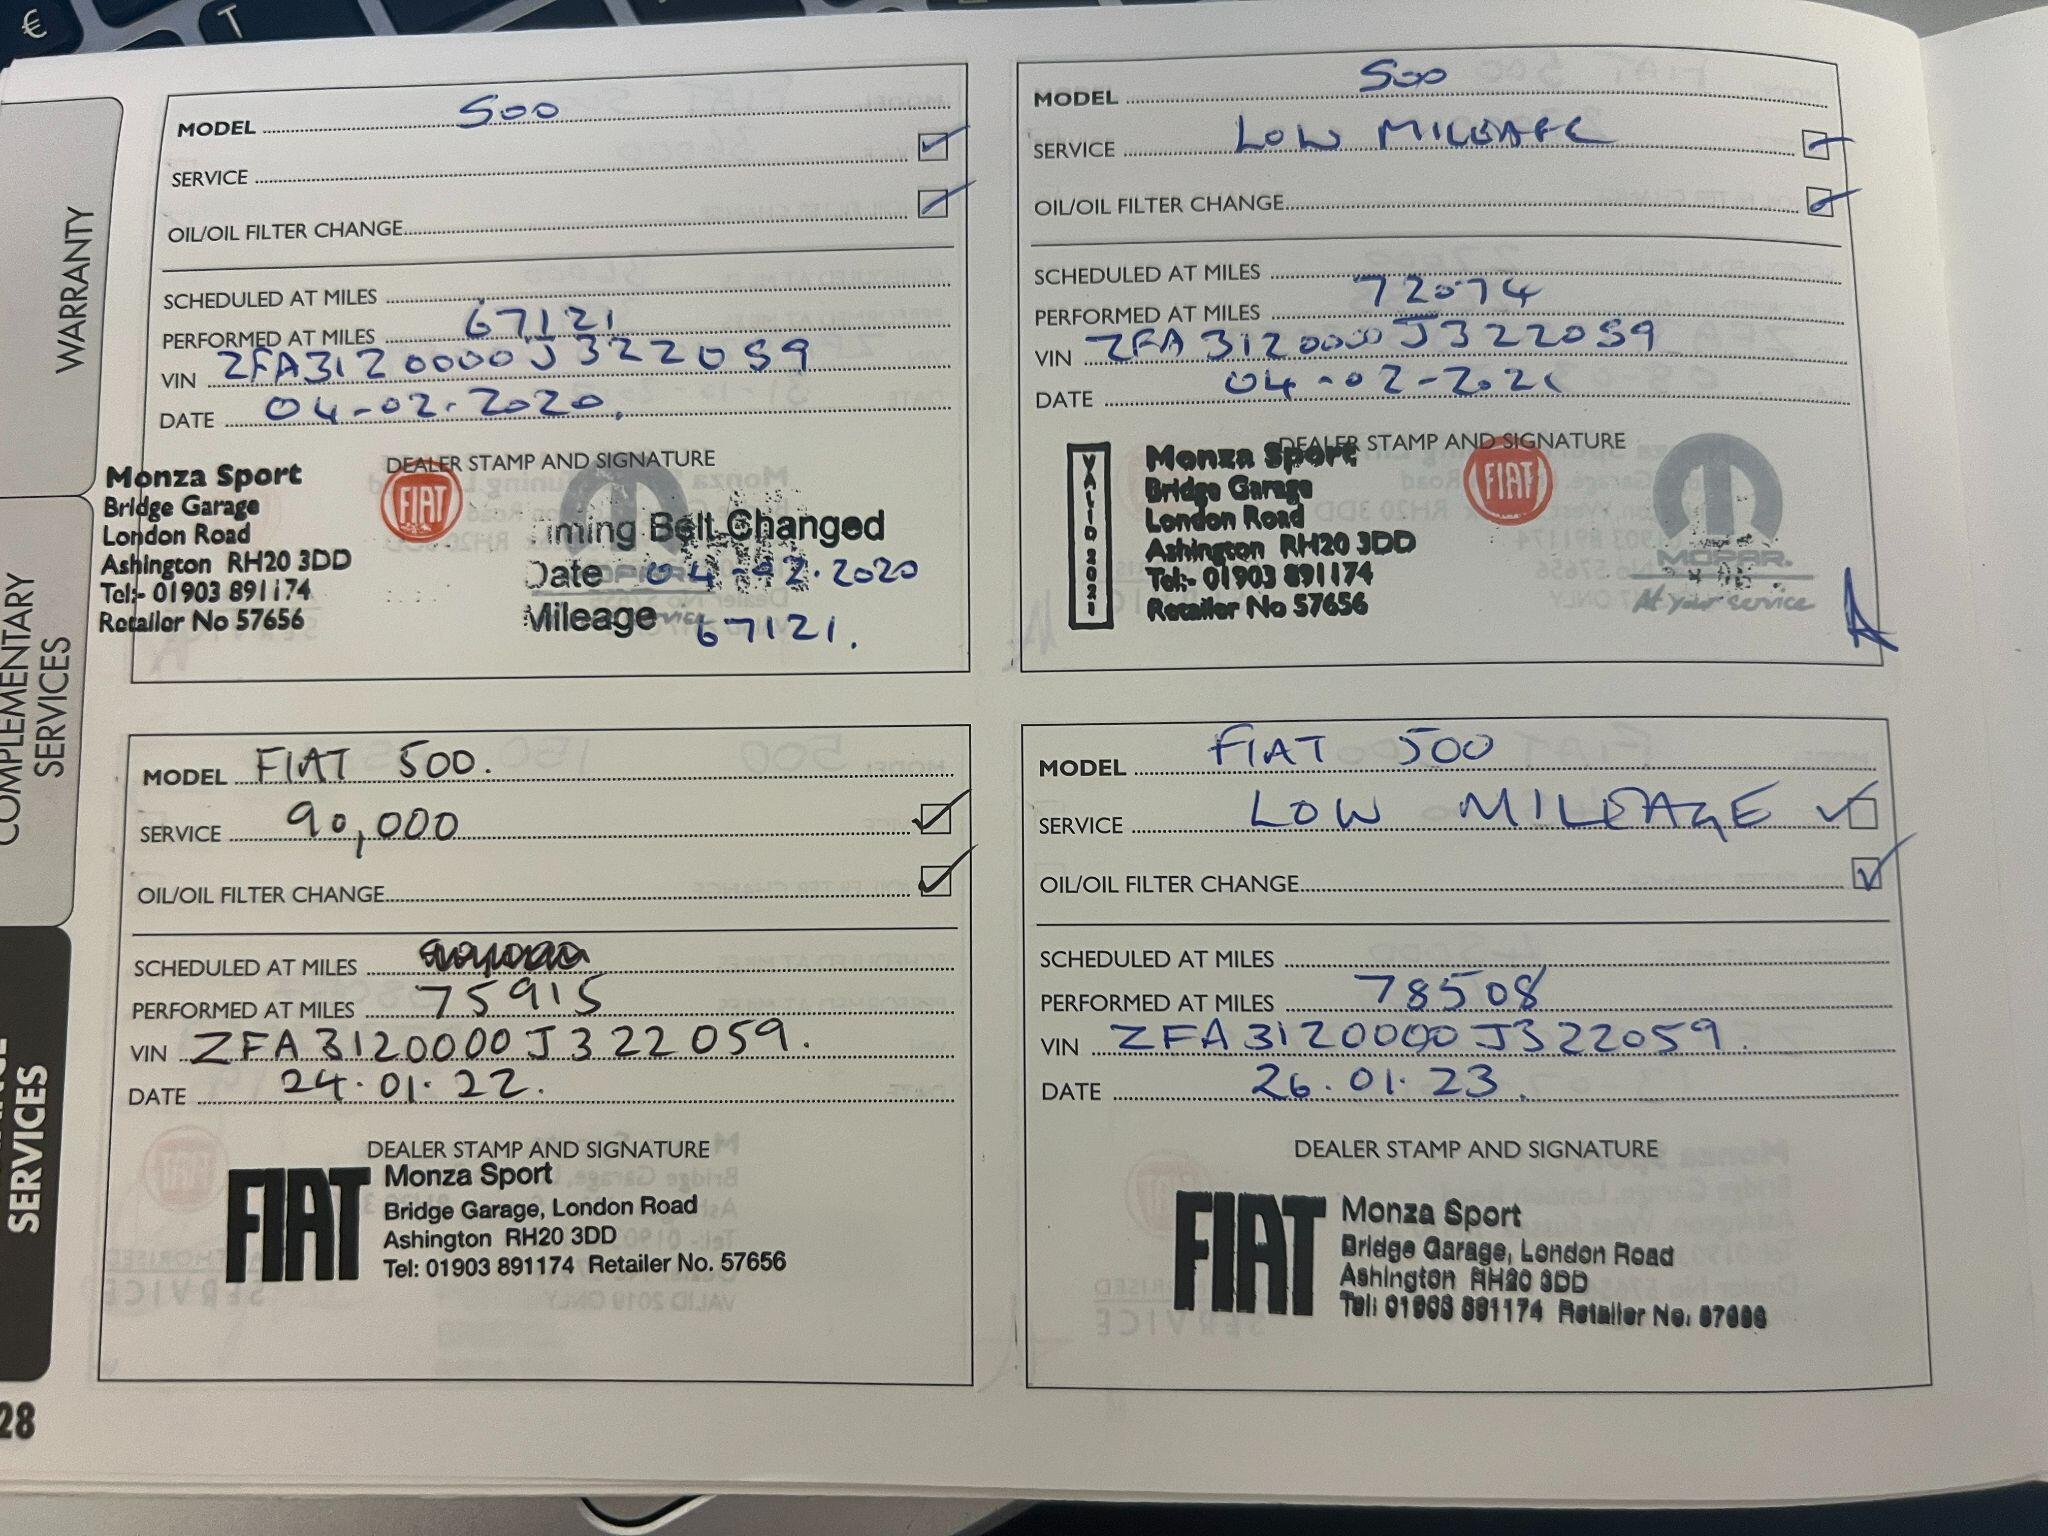 €
T
WARRANTY
COMPLEMENTARY
SERVICES
SERVICES
28
MODEL 500
SERVICE
OIL/OIL FILTER CHANGE
SCHEDULED AT MILES
PERFORMED AT MILES 67121
VIN ZFA3120000J322059
DATE 04-02-2020.
DEALER STAMP AND SIGNATURE
Monza Sport
Bridge Garage
London Road
Ashington RH20 3DD
Tel:- 01903 891174
Retailer No 57656
FIAT
Timing Belt Changed
Date 04-02.2020
Mileage 67121.
MODEL 500
SERVICE LOW MILEAGE
OIL/OIL FILTER CHANGE
SCHEDULED AT MILES
PERFORMED AT MILES 72074
VIN ZFA3120000J322059
DATE 04-02-2021
DEALER STAMP AND SIGNATURE
VALID 2021
Monza Sport
Bridge Garage
London Road
Ashington RH20 3DD
Tel:- 01903 891174
Retailer No 57656
FIAT
MOPAR.
At your service
MODEL FIAT 500.
SERVICE 90,000
OIL/OIL FILTER CHANGE
SCHEDULED AT MILES
PERFORMED AT MILES 75915
VIN ZFA3120000J322059.
DATE 24.01.22.
DEALER STAMP AND SIGNATURE
FIAT
Monza Sport
Bridge Garage, London Road
Ashington RH20 3DD
Tel: 01903 891174 Retailer No. 57656
MODEL FIAT 500
SERVICE LOW MILEAGE
OIL/OIL FILTER CHANGE
SCHEDULED AT MILES
PERFORMED AT MILES 78508
VIN ZFA3120000J322059.
DATE 26.01.23.
DEALER STAMP AND SIGNATURE
FIAT
Monza Sport
Bridge Garage, London Road
Ashington RH20 3DD
Tel: 01903 891174 Retailer No.